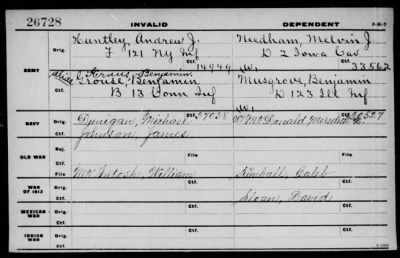 26728 INVALID DEPENDENT
ARMY
Orig. Huntley, Andrew J. Needham, Melvin J.
F 121 NY Inf D 2 Iowa Cav
Ctf. 14949 W. 33562
alias Kraus, Benjamin
Orig. Grouse, Benjamin Musgrove, Benjamin
B 13 Conn Inf D 123 Ill Inf
Ctf. W.
NAVY
Orig. Dunigan, Michael Ctf. 27028 McDonald, Meredith Ctf. 20527
Johnson, James
OLD WAR
Rej.
File File
WAR OF 1812
Orig. McIntosh, William Kimball, Caleb
Ctf. Ctf.
Sloan, David
MEXICAN WAR
Orig.
Ctf. Ctf.
INDIAN WAR
Orig.
Ctf. Ctf.